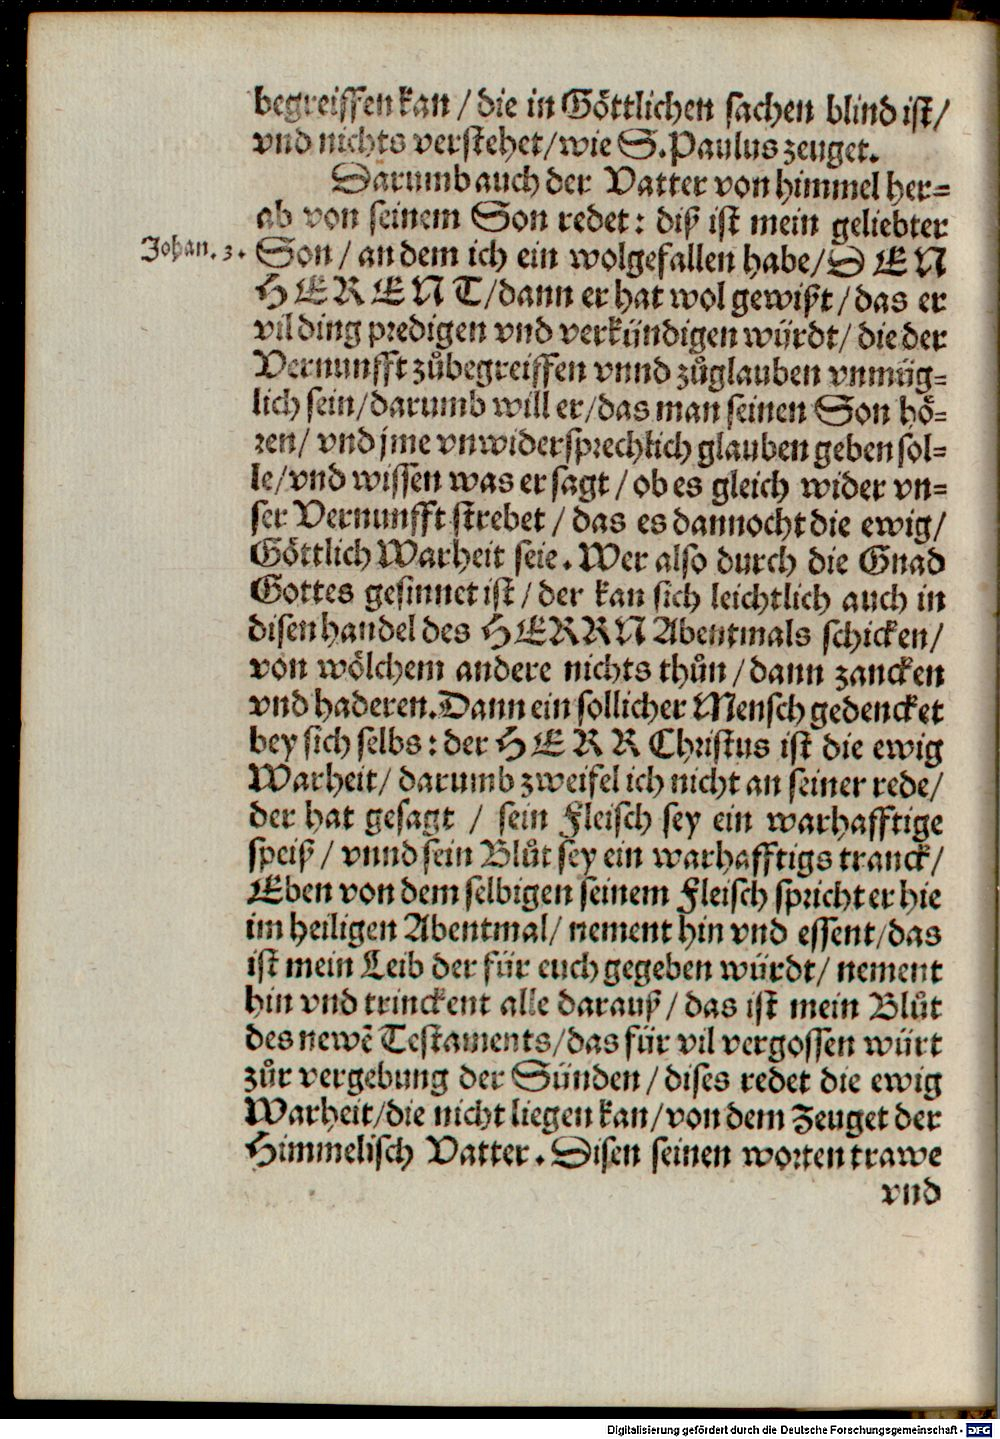 begreiffen kan / die in Göttlichen sachen blind ist /
vnd nichts verstehet / wie S. Paulus zeuget.
Darumb auch der Vatter von himmel her=
ab von seinem Son redet: diß ist mein geliebter
Johan. 3.
Son / an dem ich ein wolgefallen habe / DEN
HERENT / dann er hat wol gewißt / das er
vil ding predigen vnd verkündigen würdt / die der
Vernunfft zůbegreiffen vnnd zůglauben vnmüg=
lich sein / darumb will er / das man seinen Son hö=
ren / vnd jme vnwidersprechlich glauben geben sol=
le / vnd wissen was er sagt / ob es gleich wider vn=
ser Vernunfft strebet / das es dannocht die ewig /
Göttlich Warheit seie. Wer also durch die Gnad
Gottes gesinnet ist / der kan sich leichtlich auch in
disen handel des HERRN Abentmals schicken /
von wölchem andere nichts thůn / dann zancken
vnd haderen. Dann ein sollicher Mensch gedencket
bey sich selbs: der HERR Christus ist die ewig
Warheit / darumb zweifel ich nicht an seiner rede /
der hat gesagt / sein Fleisch sey ein warhafftige
speiß / vnnd sein Blůt sey ein warhafftigs tranck /
Eben von dem selbigen seinem Fleisch spricht er hie
im heiligen Abentmal / nement hin vnd essent / das
ist mein Leib der für euch gegeben würdt / nement
hin vnd trinckent alle darauß / das ist mein Blůt
des newẽ Testaments / das für vil vergossen würt
zůr vergebung der Sünden / dises redet die ewig
Warheit / die nicht liegen kan / von dem Zeuget der
Himmelisch Vatter. Disen seinen worten trawe
vnd
Digitalisierung gefördert durch die Deutsche Forschungsgemeinschaft - DFG